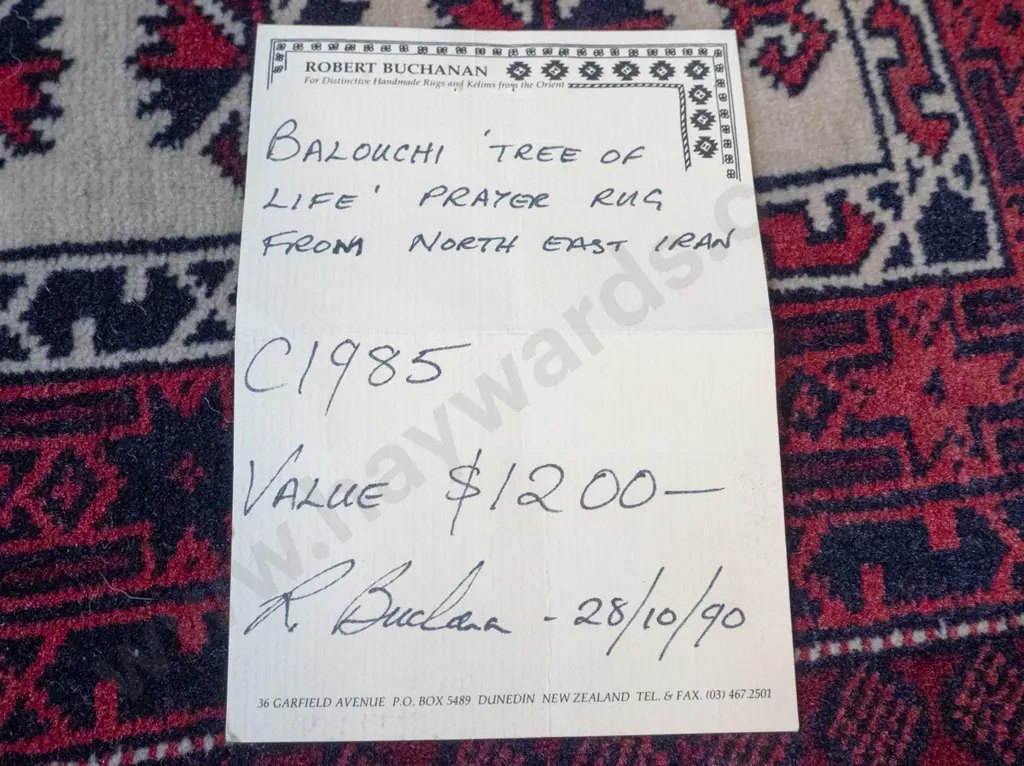 ROBERT BUCHANAN
For Distinctive Handmade Rugs and Kelims from the Orient
BALOUCHI 'TREE OF
LIFE' PRAYER RUG
FROM NORTH EAST IRAN
C1985
VALUE $1200—
R. Buchanan - 28/10/90
36 GARFIELD AVENUE P.O. BOX 5489 DUNEDIN NEW ZEALAND TEL. & FAX. (03) 467.2501
www.haywards.c